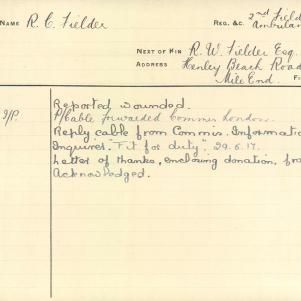 NAME R. C. Fielder REG. &C. 2nd Field
Ambulan
NEXT OF KIN R. W. Fielder Esq.
ADDRESS Henley Beach Road
Mile End.
Reported wounded.
P/Cable forwarded Commis London.
Reply cable from Commis. Informatio
Inquirer. "Fit for duty". 29.6.17.
Letter of thanks, enclosing donation, fro
Acknowledged.